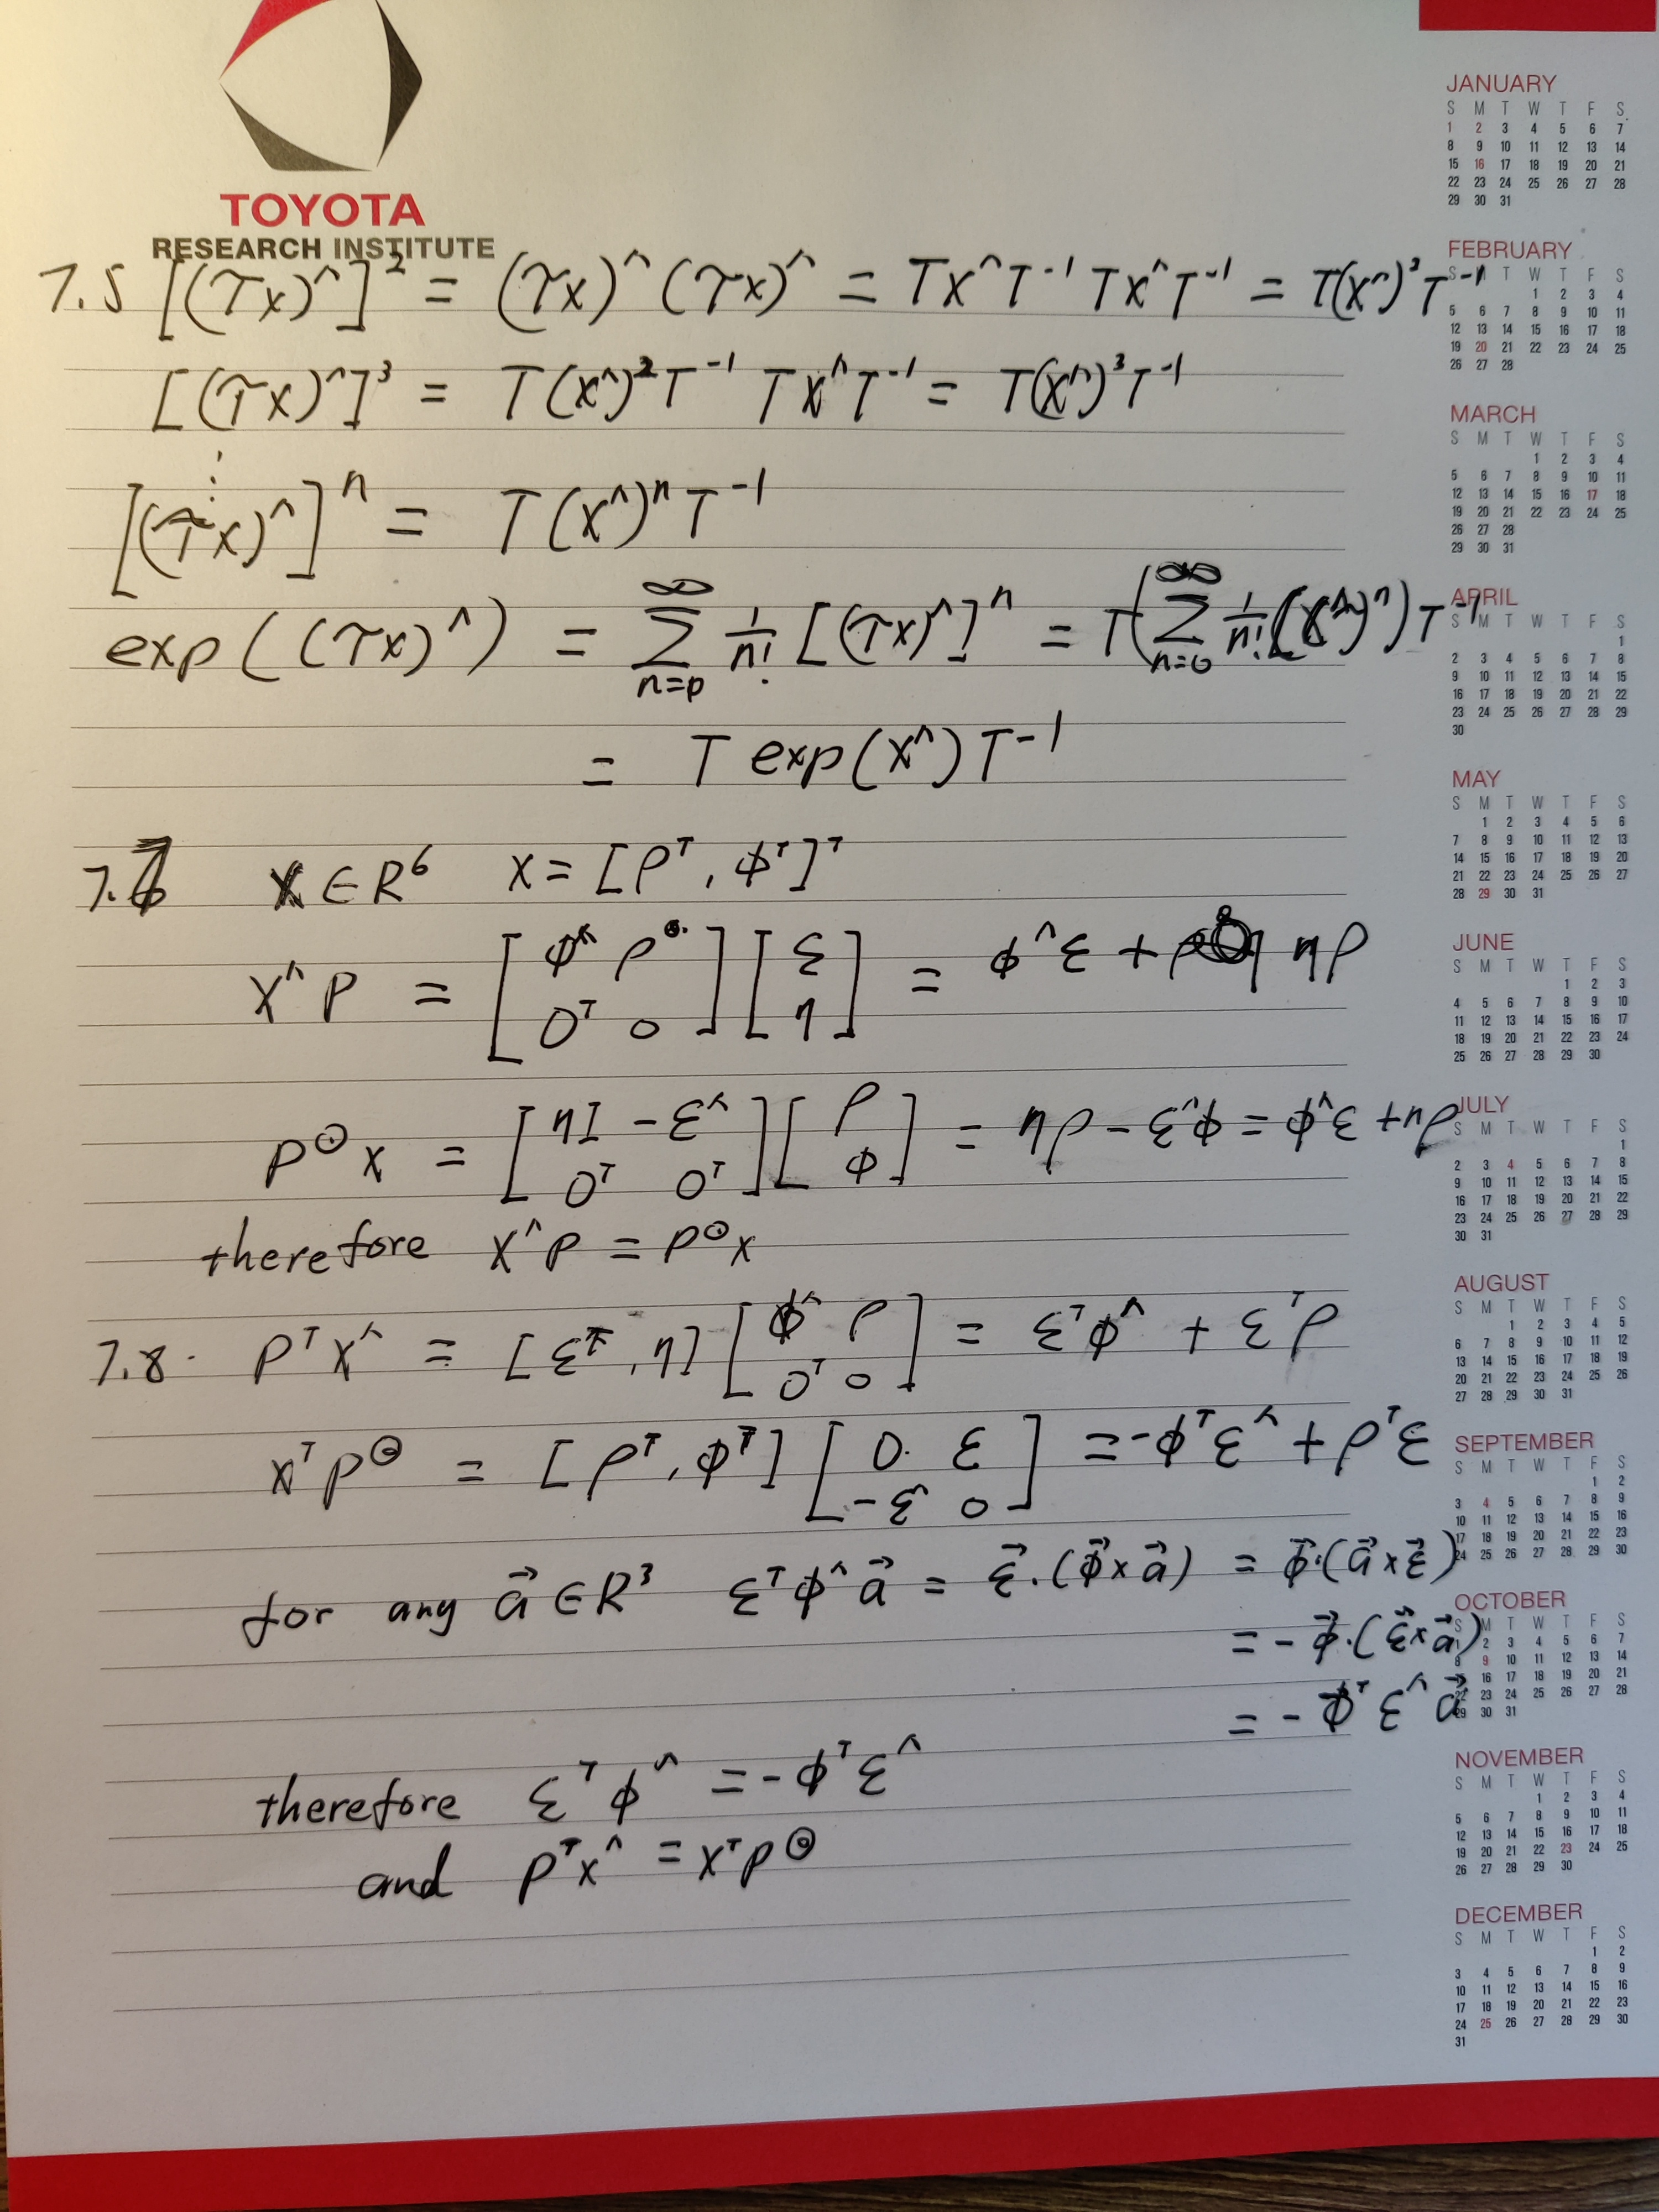 TOYOTA
RESEARCH INSTITUTE
7.5 [(𝒯x)^]² = (𝒯x)^ (𝒯x)^ = Tx^T⁻¹ Tx^T⁻¹ = T(x^)²T⁻¹
[(𝒯x)^]³ = T(x^)²T⁻¹ Tx^T⁻¹ = T(x^)³T⁻¹
⋮
[(𝒯x)^]ⁿ = T(x^)ⁿT⁻¹
exp((𝒯x)^) = ∑_{n=0}^{∞} 1/n! [(𝒯x)^]ⁿ = T(∑_{n=0}^{∞} 1/n! (x^)ⁿ)T⁻¹
= T exp(x^) T⁻¹
x ∈ R⁶ x = [ρᵀ, ϕᵀ]ᵀ
x^p = [ϕ^ ρ; 0ᵀ 0] [ε; η] = ϕ^ε + ρη
p^⊙ x = [ηI -ε^; 0ᵀ 0ᵀ] [ρ; ϕ] = ηρ - ε^ϕ = ϕ^ε + ηρ
therefore x^p = p^⊙ x
7.8. pᵀx^ = [εᵀ, η] [ϕ^ ρ; 0ᵀ 0] = εᵀϕ^ + εᵀρ
xᵀp^⊚ = [ρᵀ, ϕᵀ] [0 ε; -ε^ 0] = -ϕᵀε^ + ρᵀε
for any a⃗ ∈ R³ εᵀϕ^a⃗ = ε⃗·(ϕ⃗×a⃗) = ϕ⃗·(a⃗×ε⃗)
= -ϕ⃗·(ε⃗×a⃗)
= -ϕᵀε^a⃗
therefore εᵀϕ^ = -ϕᵀε^
and pᵀx^ = xᵀp^⊚
JANUARY
S M T W T F S
1 2 3 4 5 6 7
8 9 10 11 12 13 14
15 16 17 18 19 20 21
22 23 24 25 26 27 28
29 30 31
FEBRUARY
S M T W T F S
1 2 3 4
5 6 7 8 9 10 11
12 13 14 15 16 17 18
19 20 21 22 23 24 25
26 27 28
MARCH
S M T W T F S
1 2 3 4
5 6 7 8 9 10 11
12 13 14 15 16 17 18
19 20 21 22 23 24 25
26 27 28
29 30 31
APRIL
S M T W T F S
1
2 3 4 5 6 7 8
9 10 11 12 13 14 15
16 17 18 19 20 21 22
23 24 25 26 27 28 29
30
MAY
S M T W T F S
1 2 3 4 5 6
7 8 9 10 11 12 13
14 15 16 17 18 19 20
21 22 23 24 25 26 27
28 29 30 31
JUNE
S M T W T F S
1 2 3
4 5 6 7 8 9 10
11 12 13 14 15 16 17
18 19 20 21 22 23 24
25 26 27 28 29 30
JULY
S M T W T F S
1
2 3 4 5 6 7 8
9 10 11 12 13 14 15
16 17 18 19 20 21 22
23 24 25 26 27 28 29
30 31
AUGUST
S M T W T F S
1 2 3 4 5
6 7 8 9 10 11 12
13 14 15 16 17 18 19
20 21 22 23 24 25 26
27 28 29 30 31
SEPTEMBER
S M T W T F S
1 2
3 4 5 6 7 8 9
10 11 12 13 14 15 16
17 18 19 20 21 22 23
24 25 26 27 28 29 30
OCTOBER
S M T W T F S
1 2 3 4 5 6 7
8 9 10 11 12 13 14
16 17 18 19 20 21
23 24 25 26 27 28
29 30 31
NOVEMBER
S M T W T F S
1 2 3 4
5 6 7 8 9 10 11
12 13 14 15 16 17 18
19 20 21 22 23 24 25
26 27 28 29 30
DECEMBER
S M T W T F S
1 2
3 4 5 6 7 8 9
10 11 12 13 14 15 16
17 18 19 20 21 22 23
24 25 26 27 28 29 30
31